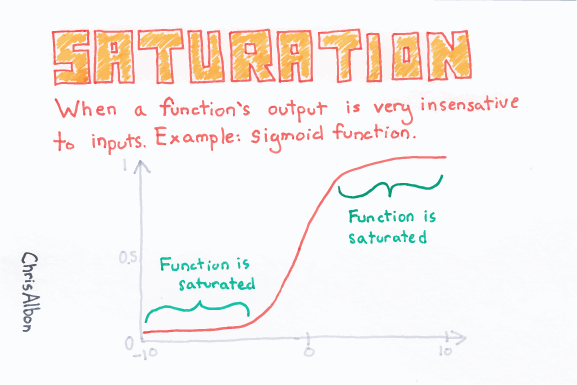 SATURATION
When a function's output is very insensative
to inputs. Example: Sigmoid function.
1
Function is
saturated
0.5
Function is
saturated
0
-10
0
10
ChrisAlbon